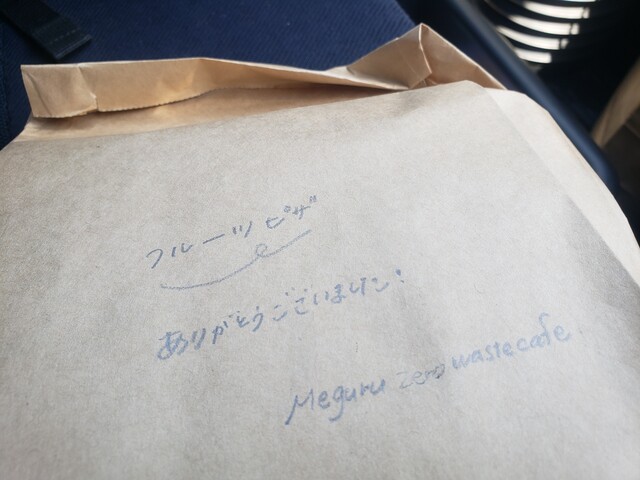 フルーツピザ
ありがとうございました!
Meguru zero waste cafe